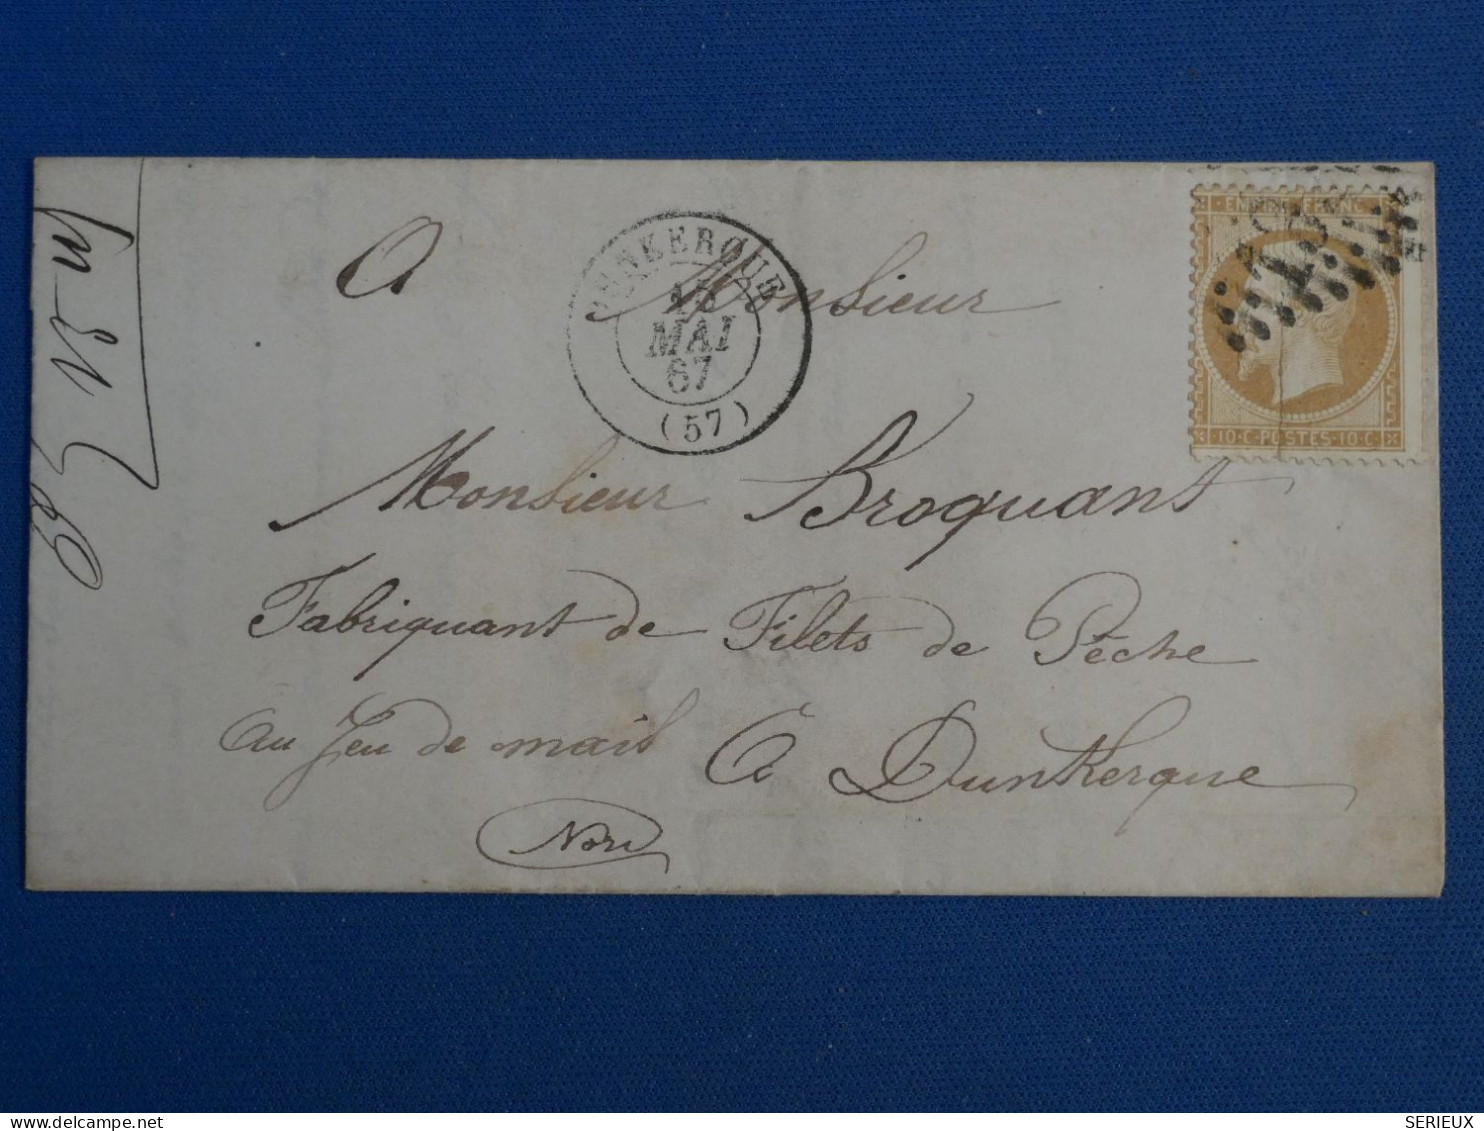 EMPIRE FRANC
10·C·POSTES·10·C·
DUNKERQUE
15
MAI
67
(57)
A Monsieur
Monsieur Broquant
Fabriquant de Filets de Pêche
au Jeu de mail à Dunkerque
Nord
delcampe.net
SERIEUX